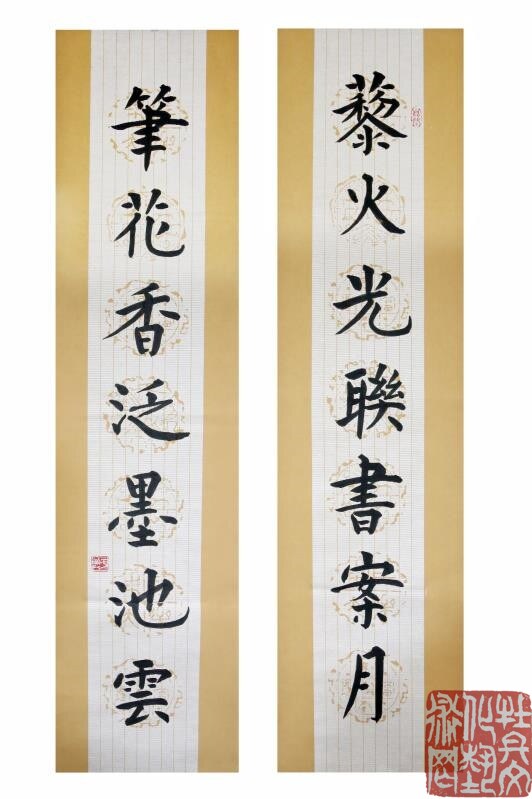 藜火光聯書案月
筆花香泛墨池雲